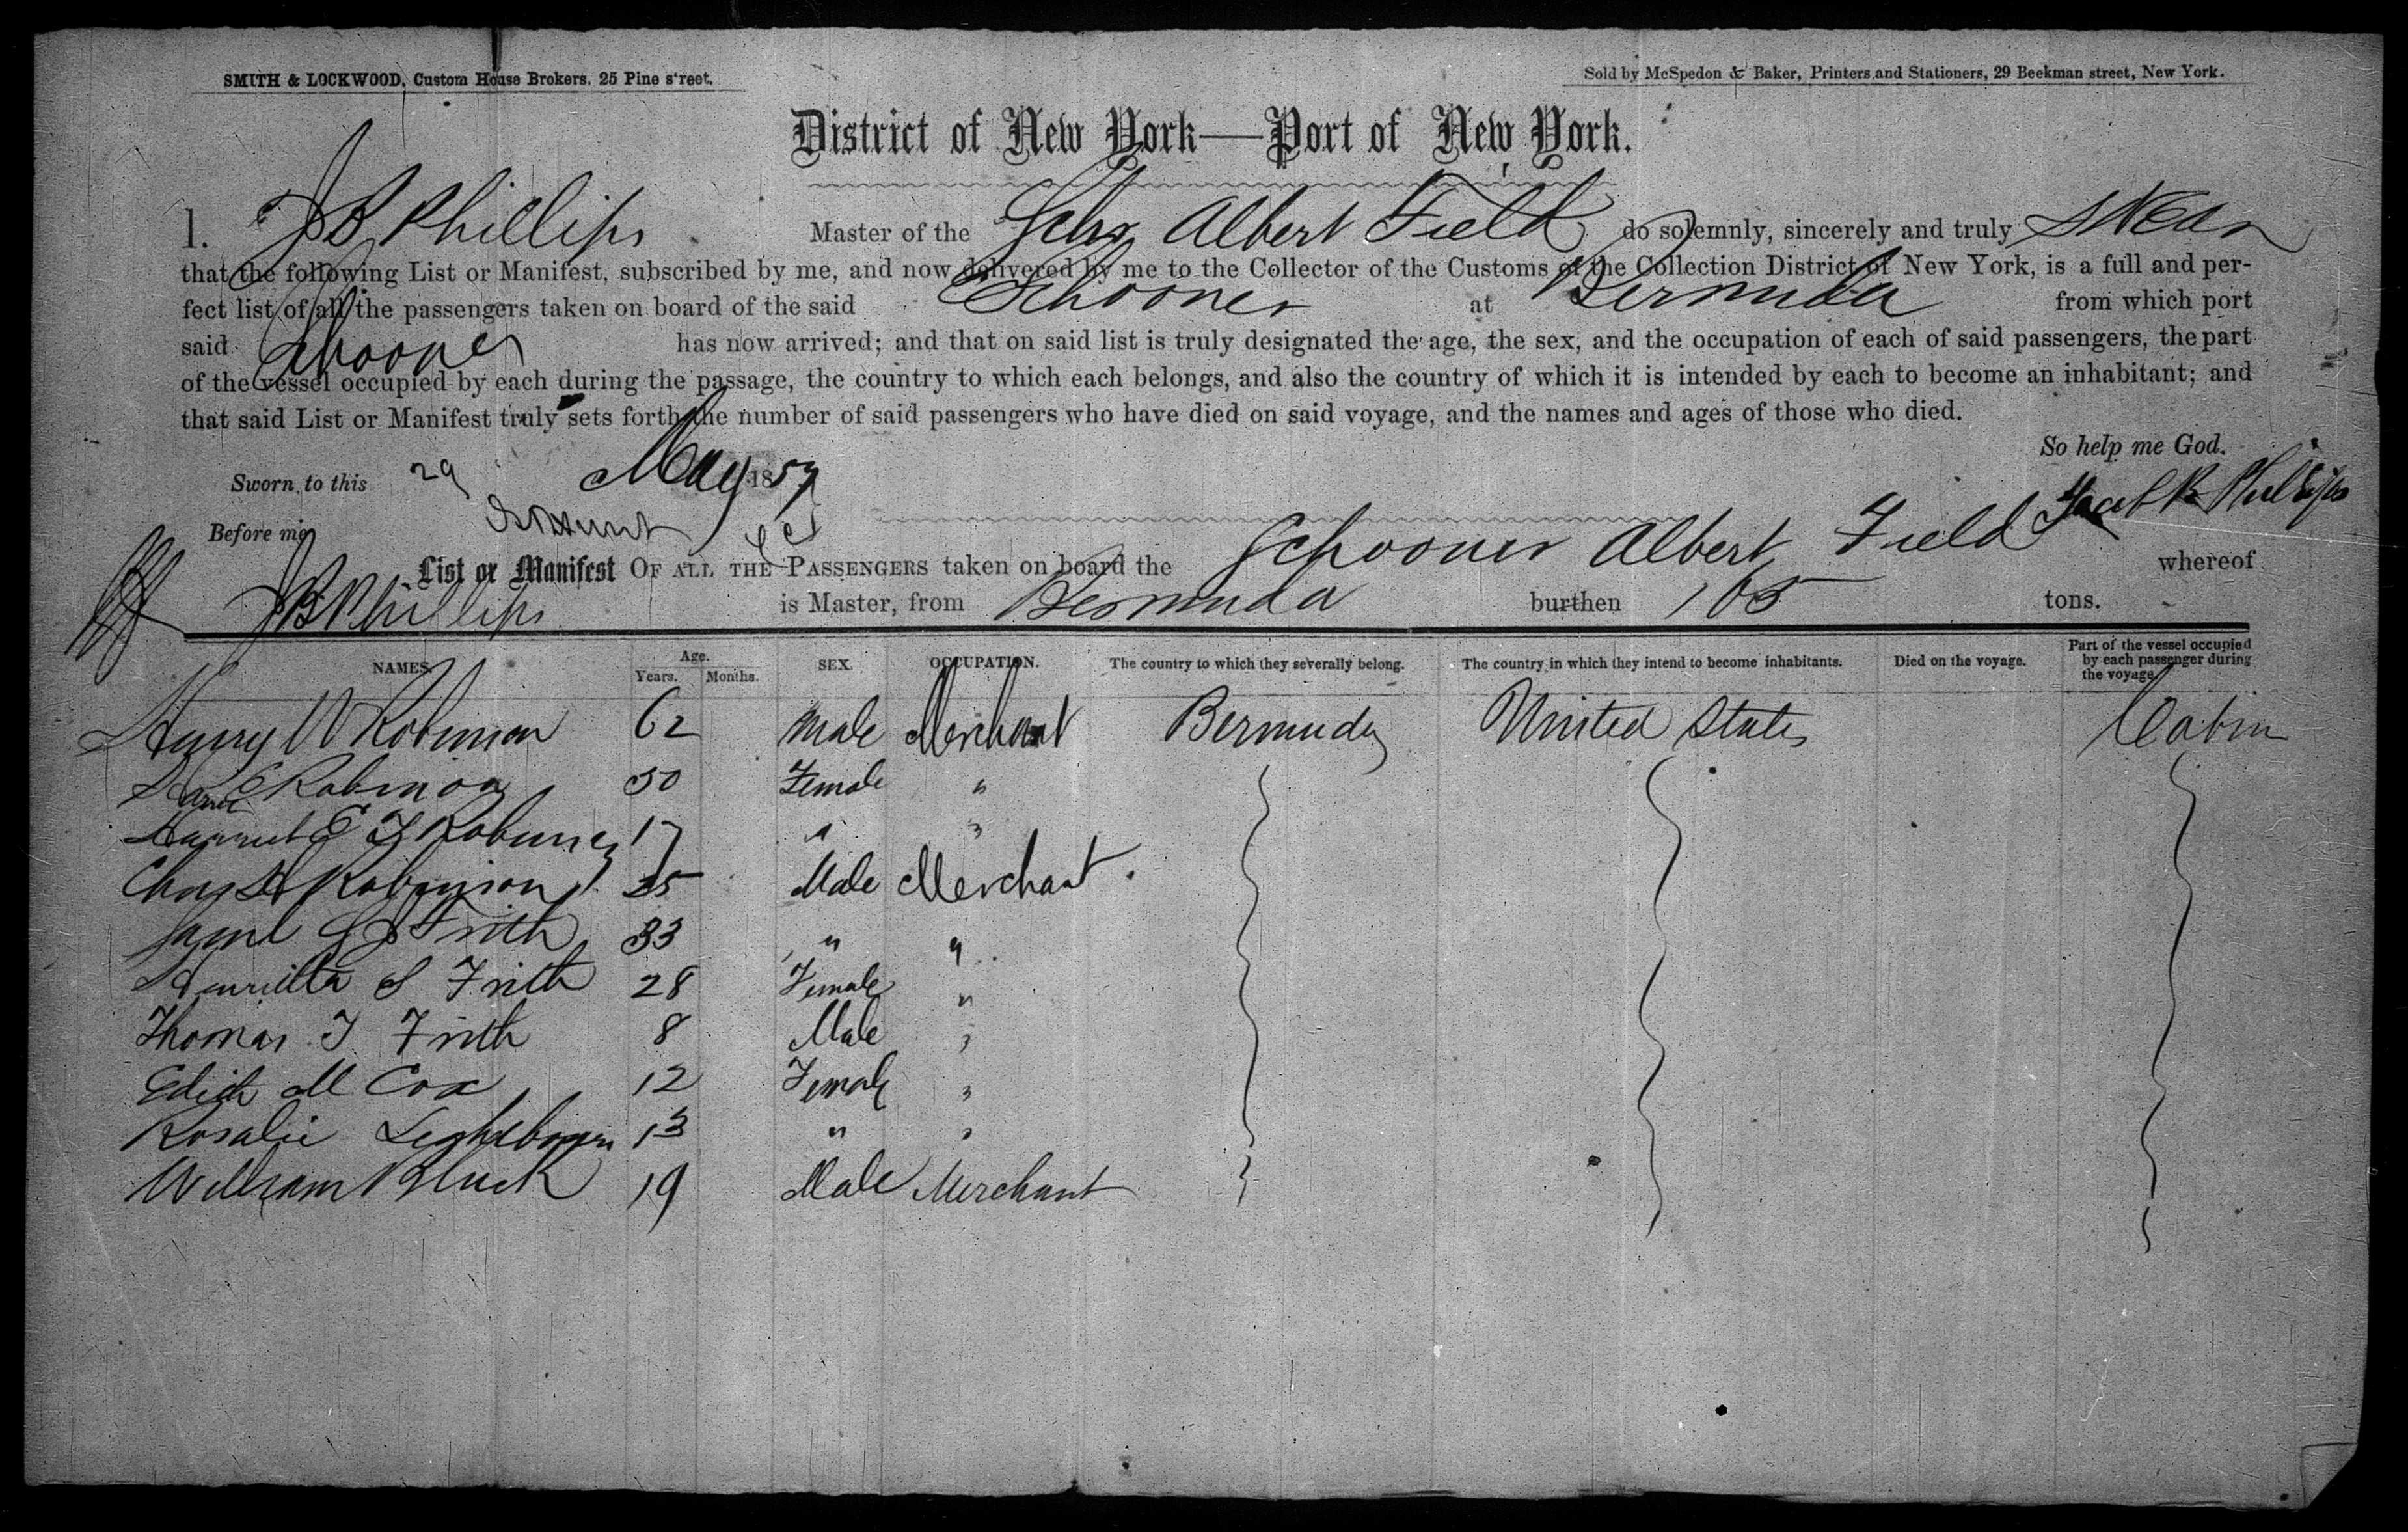 SMITH & LOCKWOOD, Custom House Brokers. 25 Pine s'reet.
Sold by McSpedon & Baker, Printers and Stationers, 29 Beekman street, New York.
District of New York—Port of New York.
I. J B Phillips Master of the Schr Albert Field do solemnly, sincerely and truly swear
that the following List or Manifest, subscribed by me, and now delivered by me to the Collector of the Customs of the Collection District of New York, is a full and per-
fect list of all the passengers taken on board of the said Schooner at Bermuda from which port
said Schooner has now arrived; and that on said list is truly designated the age, the sex, and the occupation of each of said passengers, the part
of the vessel occupied by each during the passage, the country to which each belongs, and also the country of which it is intended by each to become an inhabitant; and
that said List or Manifest truly sets forth the number of said passengers who have died on said voyage, and the names and ages of those who died.
So help me God.
Sworn to this 29 May 1857
Before me
List or Manifest OF ALL THE PASSENGERS taken on board the Schooner Albert Field whereof
J B Phillips is Master, from Bermuda burthen 165 tons.
NAMES. Age. Years. Months. SEX. OCCUPATION. The country to which they severally belong. The country in which they intend to become inhabitants. Died on the voyage. Part of the vessel occupied by each passenger during the voyage.
Henry W Robinson 62 Male Merchant Bermuda United States Cabin
E Robinson 50 Female "
Harriet E Robinson 17 " "
Chas Robinson 25 Male Merchant.
Frith 33 " "
Henrietta S Frith 28 Female "
Thomas T Frith 8 Male "
Edith M Cox 12 Female "
Rosalie Lightbourn 13 " "
William Bluck 19 Male Merchant